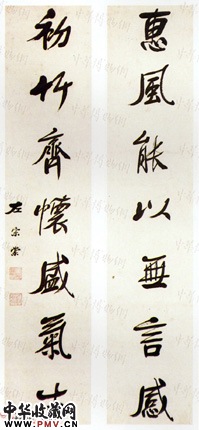 惠風能以無言感
初竹齊懷盛氣生
左宗棠
中华收藏网
WWW.PMV.CN